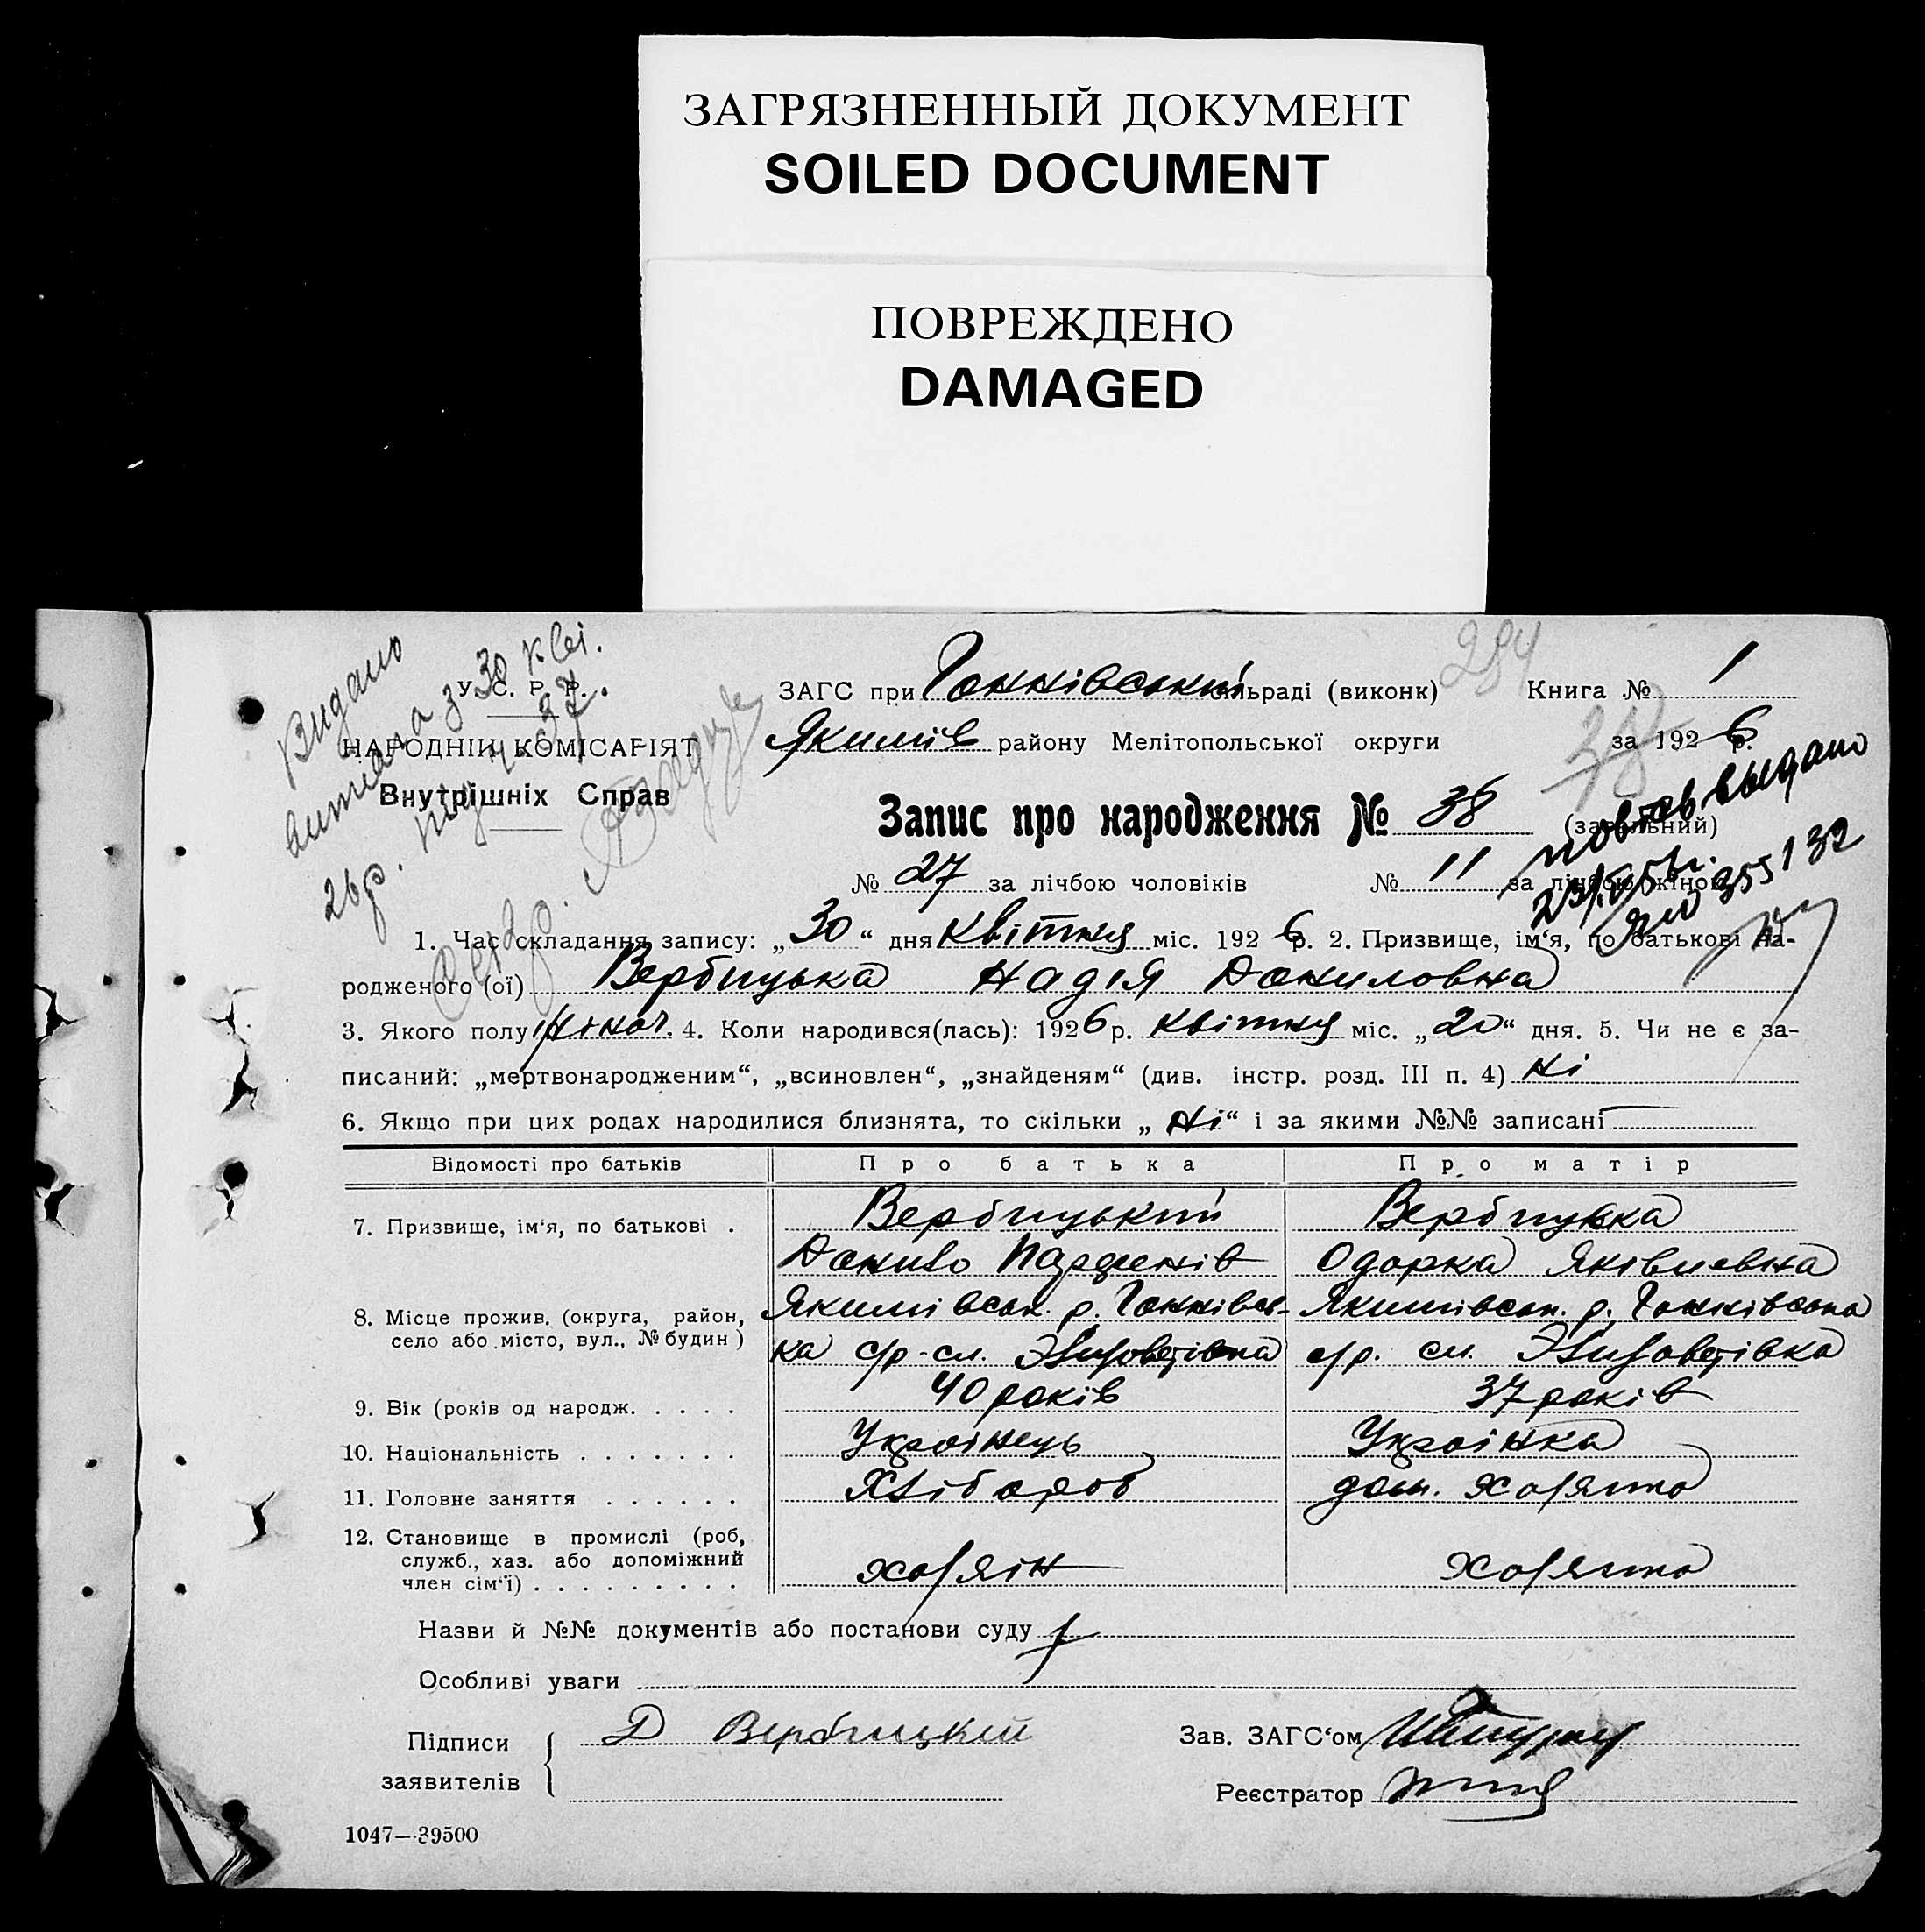 ЗАГРЯЗНЕННЫЙ ДОКУМЕНТ
SOILED DOCUMENT
ПОВРЕЖДЕНО
DAMAGED
Видано
витяга з 30 кві.
26р. під ч. 37.
284
У. С. Р. Р.
НАРОДНІЙ КОМІСАРІЯТ
Внутрішніх Справ
ЗАГС при Ганнівській сільраді (виконк) Книга № 1
Якимів району Мелітопольської округи за 1926 р.
Запис про народження № 38 (загальний)
№ 27 за лічбою чоловіків № 11 за лічбою жінок
повтов выдано
355132
1. Час складання запису: „30“ дня квітня міс. 1926 р. 2. Призвище, ім‘я, по батькові на-
родженого (ої) Вербицька Надія Даниловна
3. Якого полу жіноч. 4. Коли народився(лась): 1926 р. квітня міс. „20“ дня. 5. Чи не є за-
писаний: „мертвонародженим“, „всиновлен“, „знайденям“ (див. інстр. розд. III п. 4) Ні
6. Якщо при цих родах народилися близнята, то скільки „Ні“ і за якими №№ записані
Відомості про батьків Про батька Про матір
7. Призвище, ім‘я, по батькові . Вербицький Вербицька
Данило Парфенів Одарка Яківлевна
8. Місце прожив. (округа, район, Якимівськ. р. Ганнівсь- Якимівськ. р. Ганнівська
село або місто, вул., № будин) ка с/р. сл. Єлизоветівка с/р. сл. Єлизоветівка
9. Вік (років од народж. . . . . 40 років 37 років
10. Національність . . . . . . . Українець Українка
11. Головне заняття . . . . . . Хлібороб дом. хозяйка
12. Становище в промислі (роб,
служб., хаз. або допоміжний хозяїн хозяйка
член сім‘ї) . . . . . . . . .
Назви й №№ документів або постанови суду
Особливі уваги
Підписи Д Вербицкий Зав. ЗАГС‘ом
заявителів Реєстратор
1047—39500